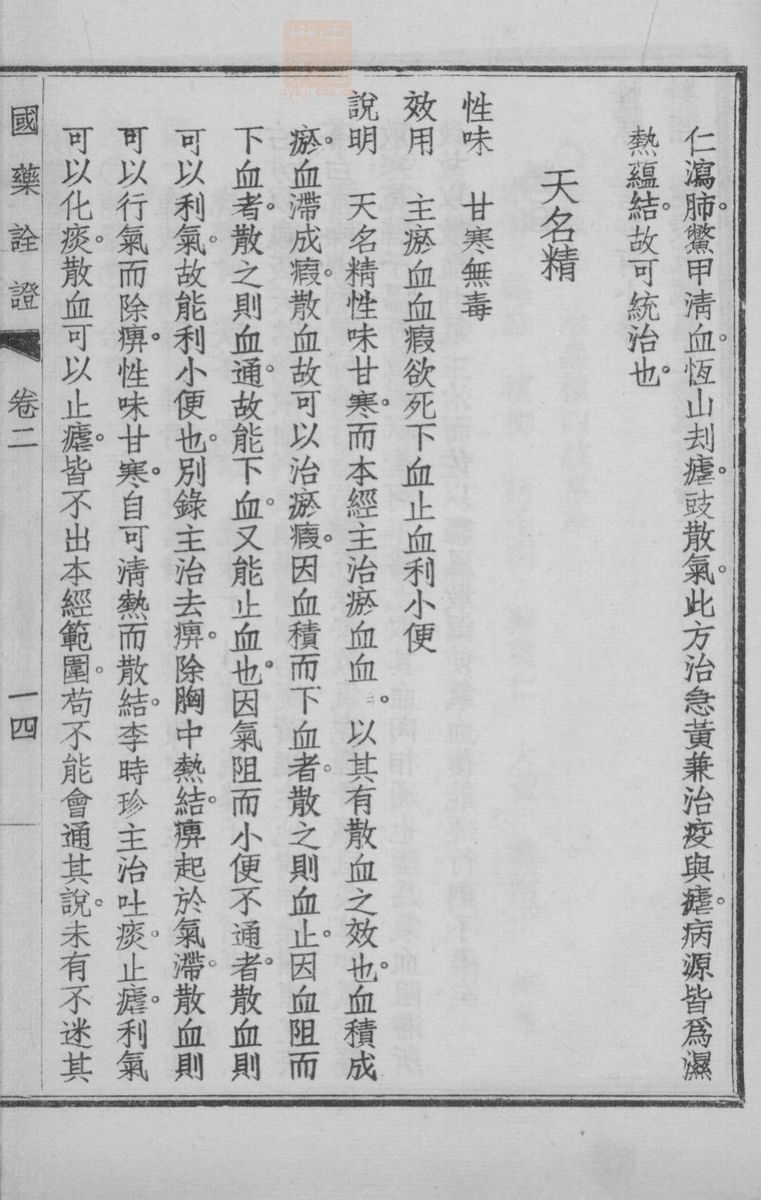 仁瀉肺。鱉甲淸血。恆山刦瘧。豉散氣。此方治急黃兼治疫與瘧。病源皆爲濕
熱蘊結。故可統治也。
天名精
性味　甘寒無毒
效用　主瘀血血瘕欲死下血止血利小便
說明　天名精性味甘寒。而本經主治瘀血血ミ。以其有散血之效也。血積成
瘀。血滯成瘕。散血故可以治瘀瘕。因血積而下血者。散之則血止。因血阻而
下血者。散之則血通。故能下血。又能止血也。因氣阻而小便不通者。散血則
可以利氣。故能利小便也。別錄主治去痹。除胸中熱結。痹起於氣滯。散血則
可以行氣而除痹。性味甘寒。自可淸熱而散結。李時珍主治吐痰。止瘧。利氣
可以化痰。散血可以止瘧。皆不出本經範圍。苟不能會通其說。未有不迷其
國藥詮證　卷二　一四